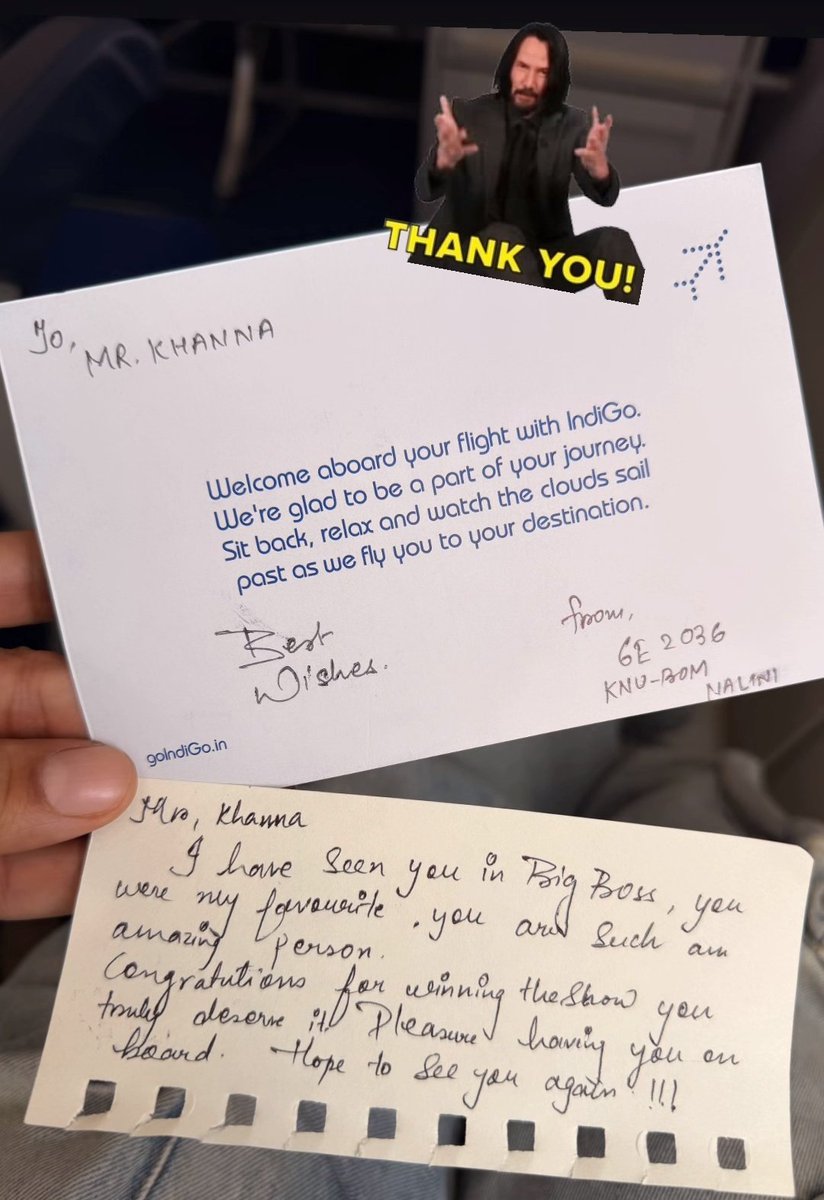 THANK YOU!
To,
MR. KHANNA
Welcome aboard your flight with IndiGo.
We're glad to be a part of your journey.
Sit back, relax and watch the clouds sail
past as we fly you to your destination.
Best
Wishes.
from,
6E 2036
KNU-BOM
NALINI
goIndiGo.in
Mr, Khanna
I have seen you in Big Boss, you
were my favourite. you are such am
amazing person.
Congratutions for winning the show you
truly deserve it. Pleasure having you on
board. Hope to see you again !!!